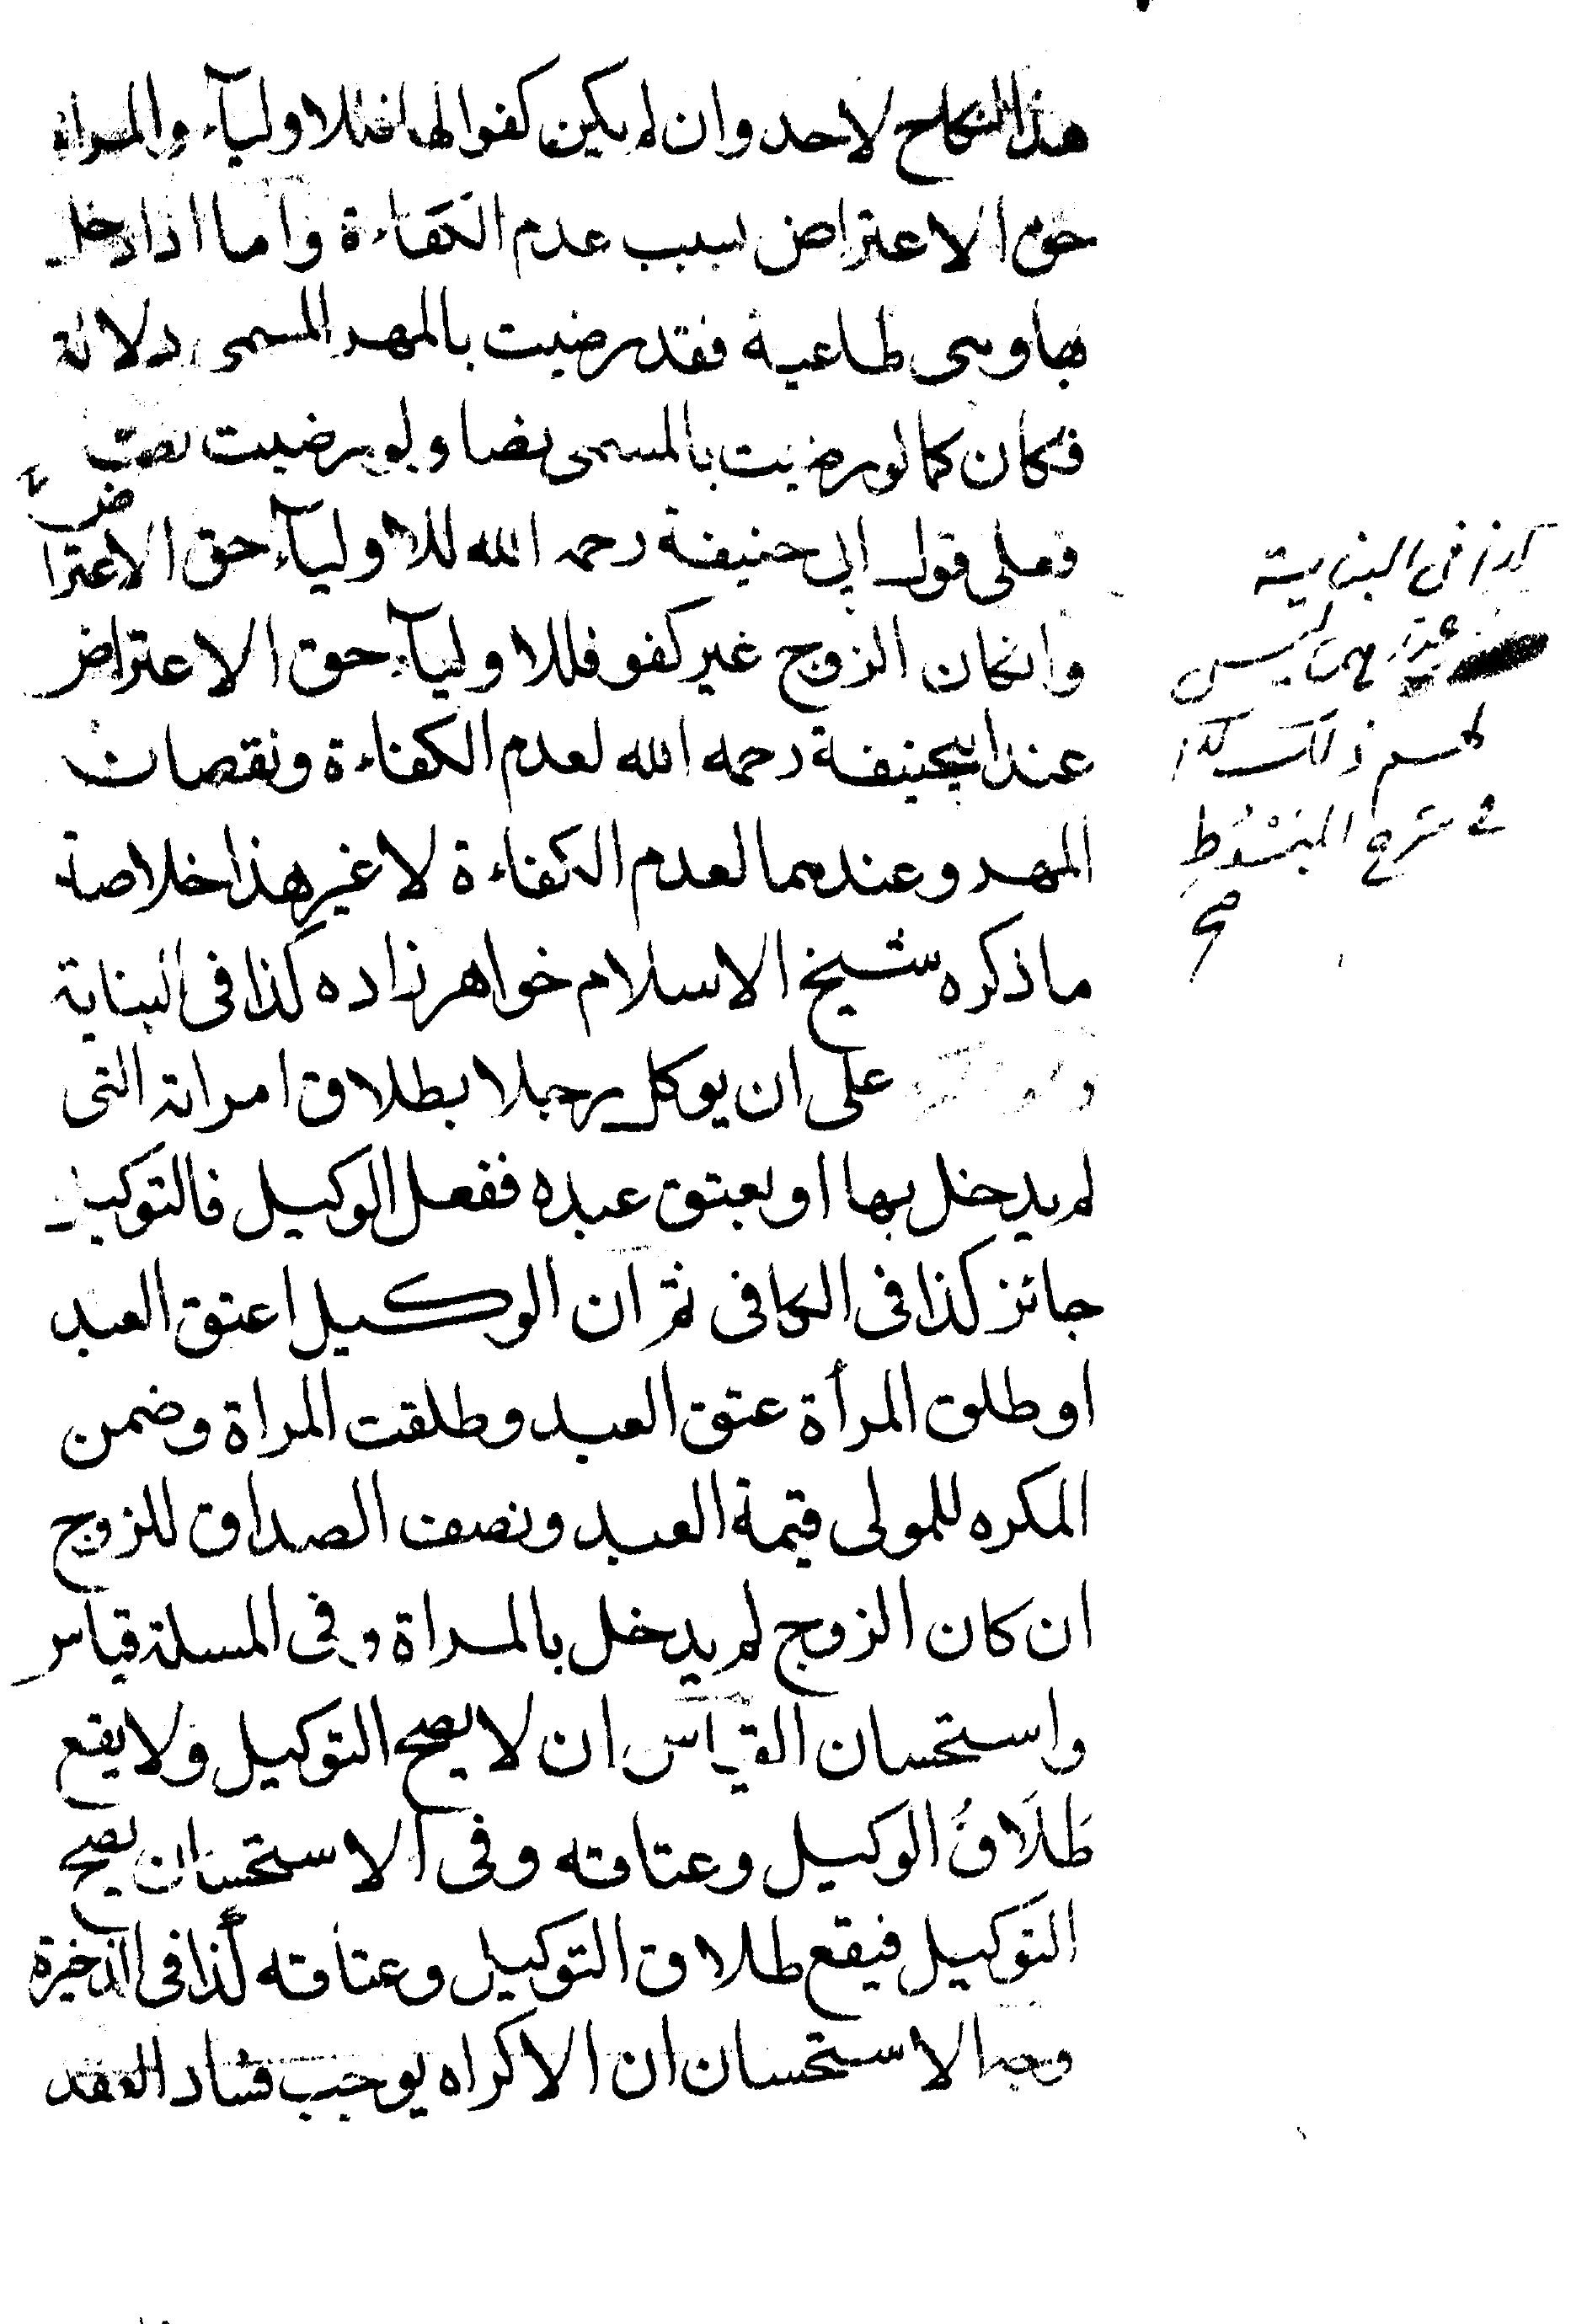 هذا النكاح لاحد وان لم يكن كفوا لها فللاوليآء والمراة
حق الاعتراض بسبب عدم الكفاءة واما اذا دخل
بها وهى طاعية فقد رضيت بالمهر المسمى دلالة
فكان كما لو رضيت بالمسمى نصا ولو رضيت نصت
فعلى قول ابى حنيفة رحمه الله للاوليآء حق الاعتراض
وانكان الزوج غير كفو فللاوليآء حق الاعتراض
عند ابيحنيفة رحمه الله لعدم الكفاءة ونقصان
المهر وعندهما لعدم الكفاءة لا غير هذا خلاصة
ما ذكره شيخ الاسلام خواهر زاده كذا فى البناية
على ان يوكل رجلا بطلاق امراته التى
لم يدخل بها او بعتق عبده ففعل الوكيل فالتوكيل
جائز كذا فى الكافى ثم ان الوكيل اعتق العبد
او طلق المرأة عتق العبد وطلقت المراة وضمن
المكره للمولى قيمة العبد ونصف الصداق للزوج
ان كان الزوج لم يدخل بالمراة وفى المسلة قياس
واستحسان القياس ان لا يصح التوكيل ولا يقع
طَلَاقُ الوكيل وعتاقه وفى الاستحسان يصح
التوكيل فيقع طلاق التوكيل وعتاقه كذا فى الذخيرة
وجه الاستحسان ان الاكراه يوجب فساد العقد
كذا فى البناية
عندهما ليس
لهم ذلك كذا
فى شرح المبسوط
صح